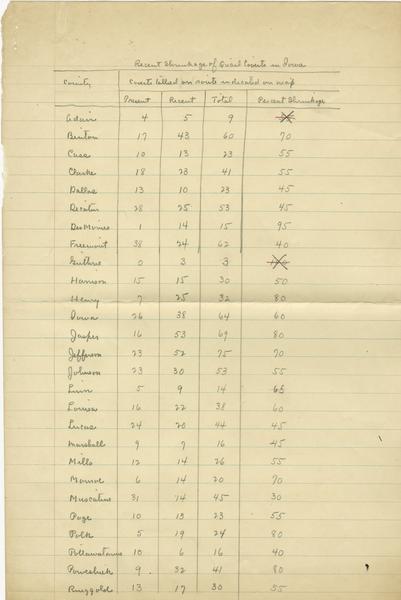 Recent Shrinkage of Quail Coverts in Iowa
County Coverts tallied on route indicated on map
Present Recent Total Percent Shrinkage
Adair 4 5 9
Benton 17 43 60 70
Cass 10 13 23 55
Clarke 18 23 41 55
Dallas 13 10 23 45
Decatur 28 25 53 45
Des Moines 1 14 15 95
Freemont 38 24 62 40
Guthrie 0 3 3
Harrison 15 15 30 50
Henry 7 25 32 80
Iowa 26 38 64 60
Jasper 16 53 69 80
Jefferson 23 52 75 70
Johnson 23 30 53 55
Linn 5 9 14 65
Louisa 16 22 38 60
Lucas 24 20 44 45
Marshall 9 7 16 45
Mills 12 14 26 55
Monroe 6 14 20 70
Muscatine 31 14 45 30
Page 10 13 23 55
Polk 5 19 24 80
Pottawatamie 10 6 16 40
Poweshiek 9 32 41 80
Ringgold 13 17 30 55